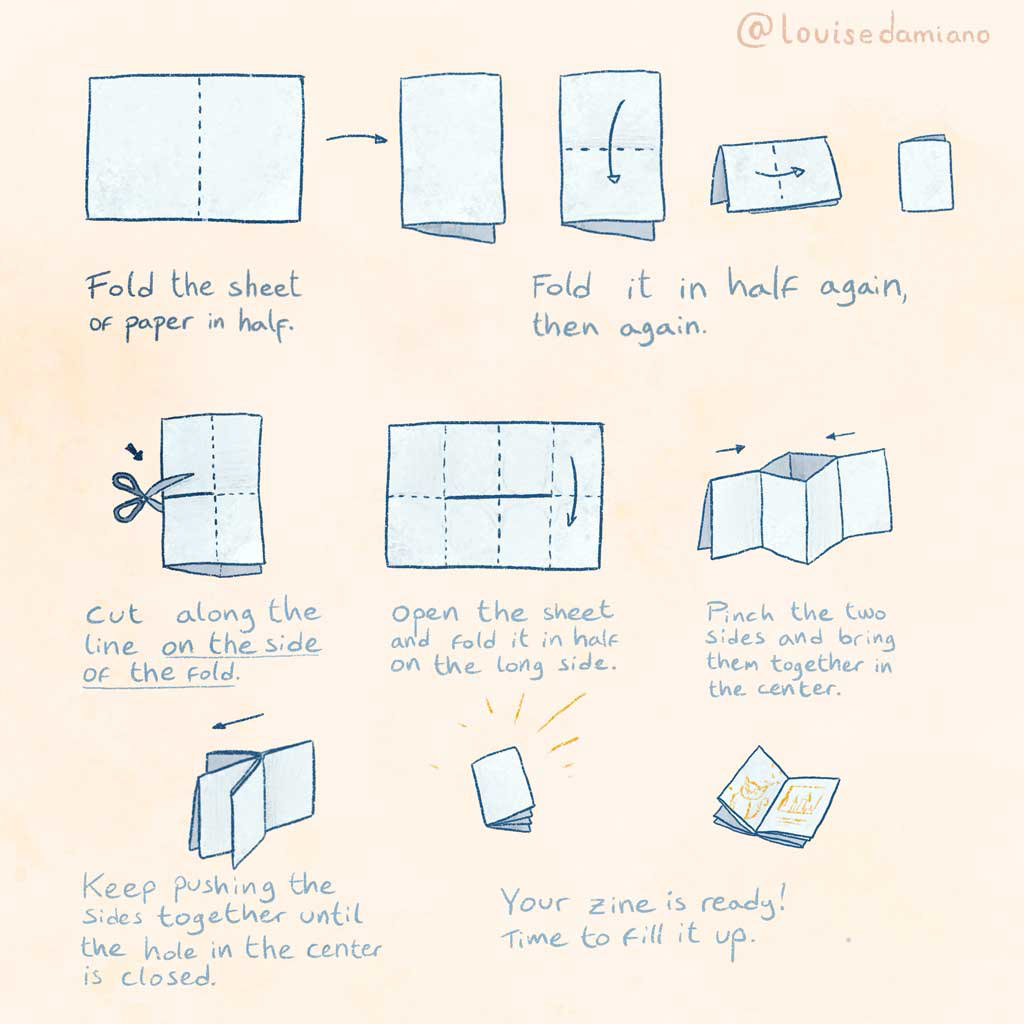 @louisedamiano
Fold the sheet
of paper in half.
Fold it in half again,
then again.
Cut along the
line on the side
of the fold.
Open the sheet
and fold it in half
on the long side.
Pinch the two
sides and bring
them together in
the center.
Keep pushing the
sides together until
the hole in the center
is closed.
Your zine is ready!
Time to fill it up.